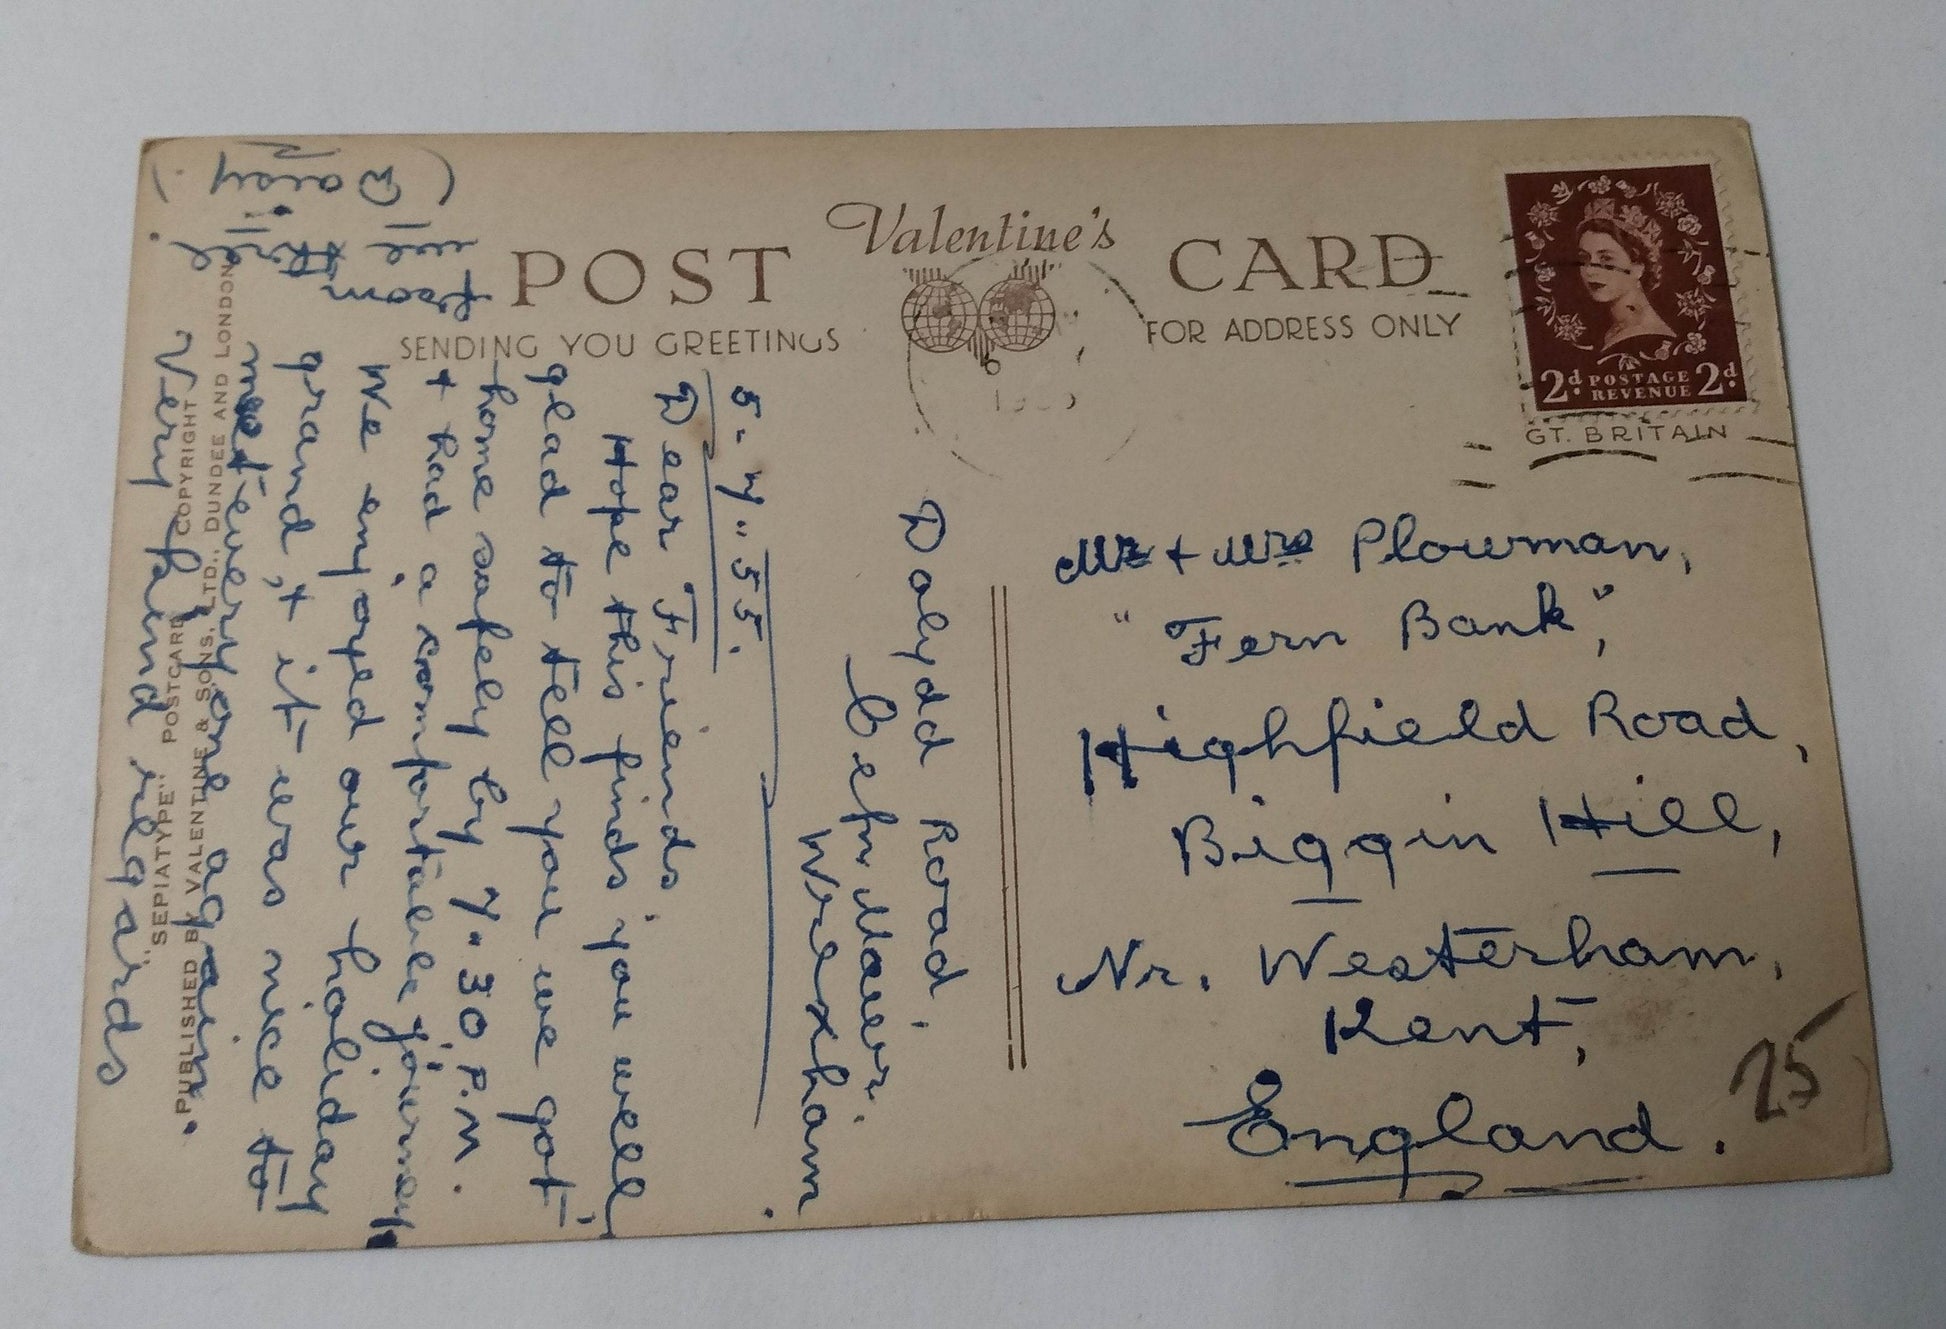 POST
Valentine's
CARD
SENDING YOU GREETINGS
FOR ADDRESS ONLY
2d. POSTAGE REVENUE 2d.
GT. BRITAIN
Dolydd Road,
Cefn Mawr.
Wrexham.
5-7-55.
Dear Friends
Hope this finds you well
glad to tell you we got
home safely by 7.30 P.M.
+ had a comfortable journey
We enjoyed our holiday
grand, + it was nice to
meet everyone again.
Very kind regards
from
(Daisy.)
"SEPIATYPE" POSTCARD COPYRIGHT
PUBLISHED BY VALENTINE & SONS, LTD., DUNDEE AND LONDON
Mr + Mrs Plowman,
"Fern Bank",
Highfield Road,
Biggin Hill,
Nr. Westerham,
Kent,
England.
25